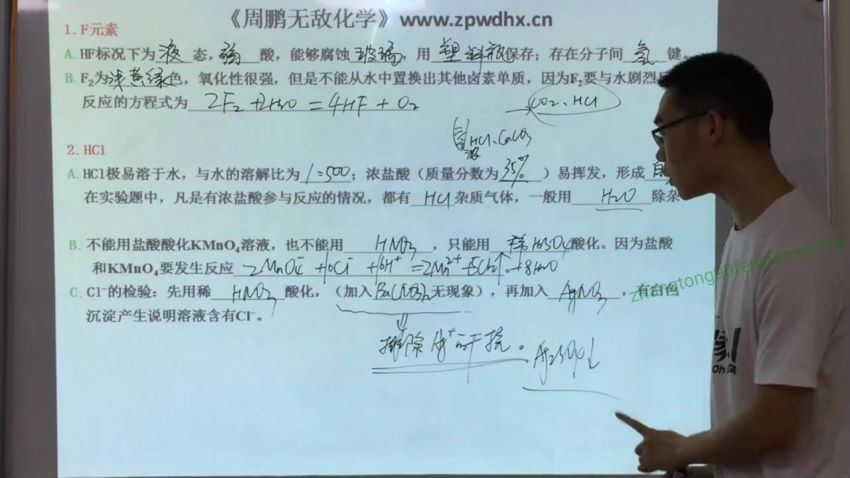 《周鹏无敌化学》www.zpwdhx.cn
1.F元素
A.HF标况下为液态，弱酸，能够腐蚀玻璃，用塑料瓶保存；存在分子间氢键。
B.F₂为浅黄绿色，氧化性很强，但是不能从水中置换出其他卤素单质，因为F₂要与水剧烈反
反应的方程式为 2F₂+2H₂O=4HF+O₂
CO₂、HCl
HCl、CaCO₃
2.HCl
A.HCl极易溶于水，与水的溶解比为1:500；浓盐酸（质量分数为35%）易挥发，形成
在实验题中，凡是有浓盐酸参与反应的情况，都有HCl杂质气体，一般用H₂O除杂
B.不能用盐酸酸化KMnO₄溶液，也不能用HNO₃，只能用稀H₂SO₄酸化。因为盐酸
和KMnO₄要发生反应 2MnO₄⁻+10Cl⁻+16H⁺=2Mn²⁺+5Cl₂↑+8H₂O
C.Cl⁻的检验：先用稀HNO₃酸化，（加入Ba(NO₃)₂无现象），再加入AgNO₃，有白色
沉淀产生说明溶液含有Cl⁻。
Ag₂SO₄↓